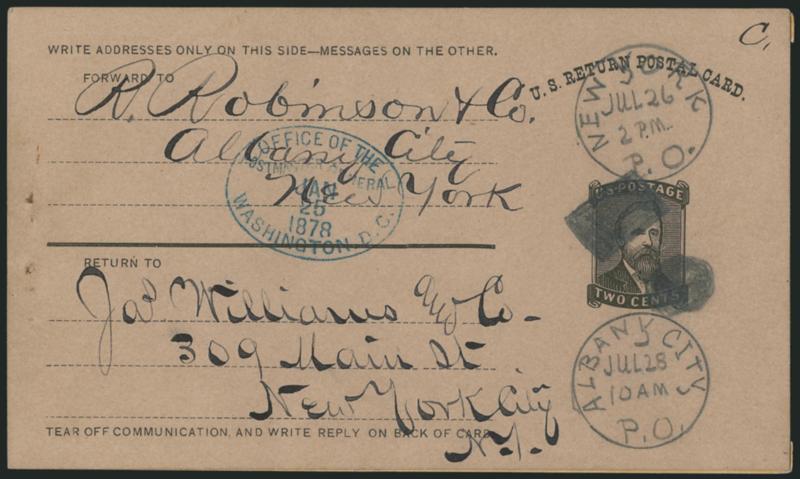 C.
WRITE ADDRESSES ONLY ON THIS SIDE—MESSAGES ON THE OTHER.
U.S. RETURN POSTAL CARD.
FORWARD TO
R. Robinson & Co.
Albany City
New York
OFFICE OF THE
POSTMASTER GENERAL
JAN
25
1878
WASHINGTON. D.C.
NEW YORK
JUL 26
2 P.M.
P.O.
U.S. POSTAGE
TWO CENTS
RETURN TO
Jas. Williams & Co-
309 Main St
New York City
N.Y.
ALBANY CITY
JUL 28
10 AM
P.O.
TEAR OFF COMMUNICATION, AND WRITE REPLY ON BACK OF CARD